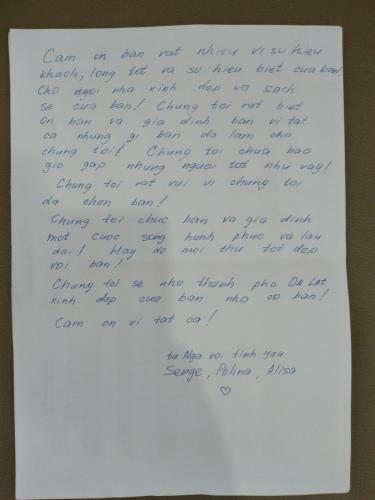 Cam on ban rat nhieu vi su hieu
khach, long tot va su hieu biet cua ban!
Cho ngoi nha xinh dep va sach
se cua ban! Chung toi rat biet
on ban va gia dinh ban vi tat
ca nhung gi ban da lam cho
chung toi! Chung toi chua bao
gio gap nhung nguoi tot nhu vay!
Chung toi rat vui vi chung toi
da chon ban!
Chung toi chuc ban va gia dinh
mot cuoc song hanh phuc va lau
dai! Hay de moi thu tot dep
voi ban!
Chung toi se nho thanh pho DA LAT
xinh dep cua ban nho co ban!
Cam on vi tat ca!
tu Nga voi tinh yeu
Serge, Polina, Alisa